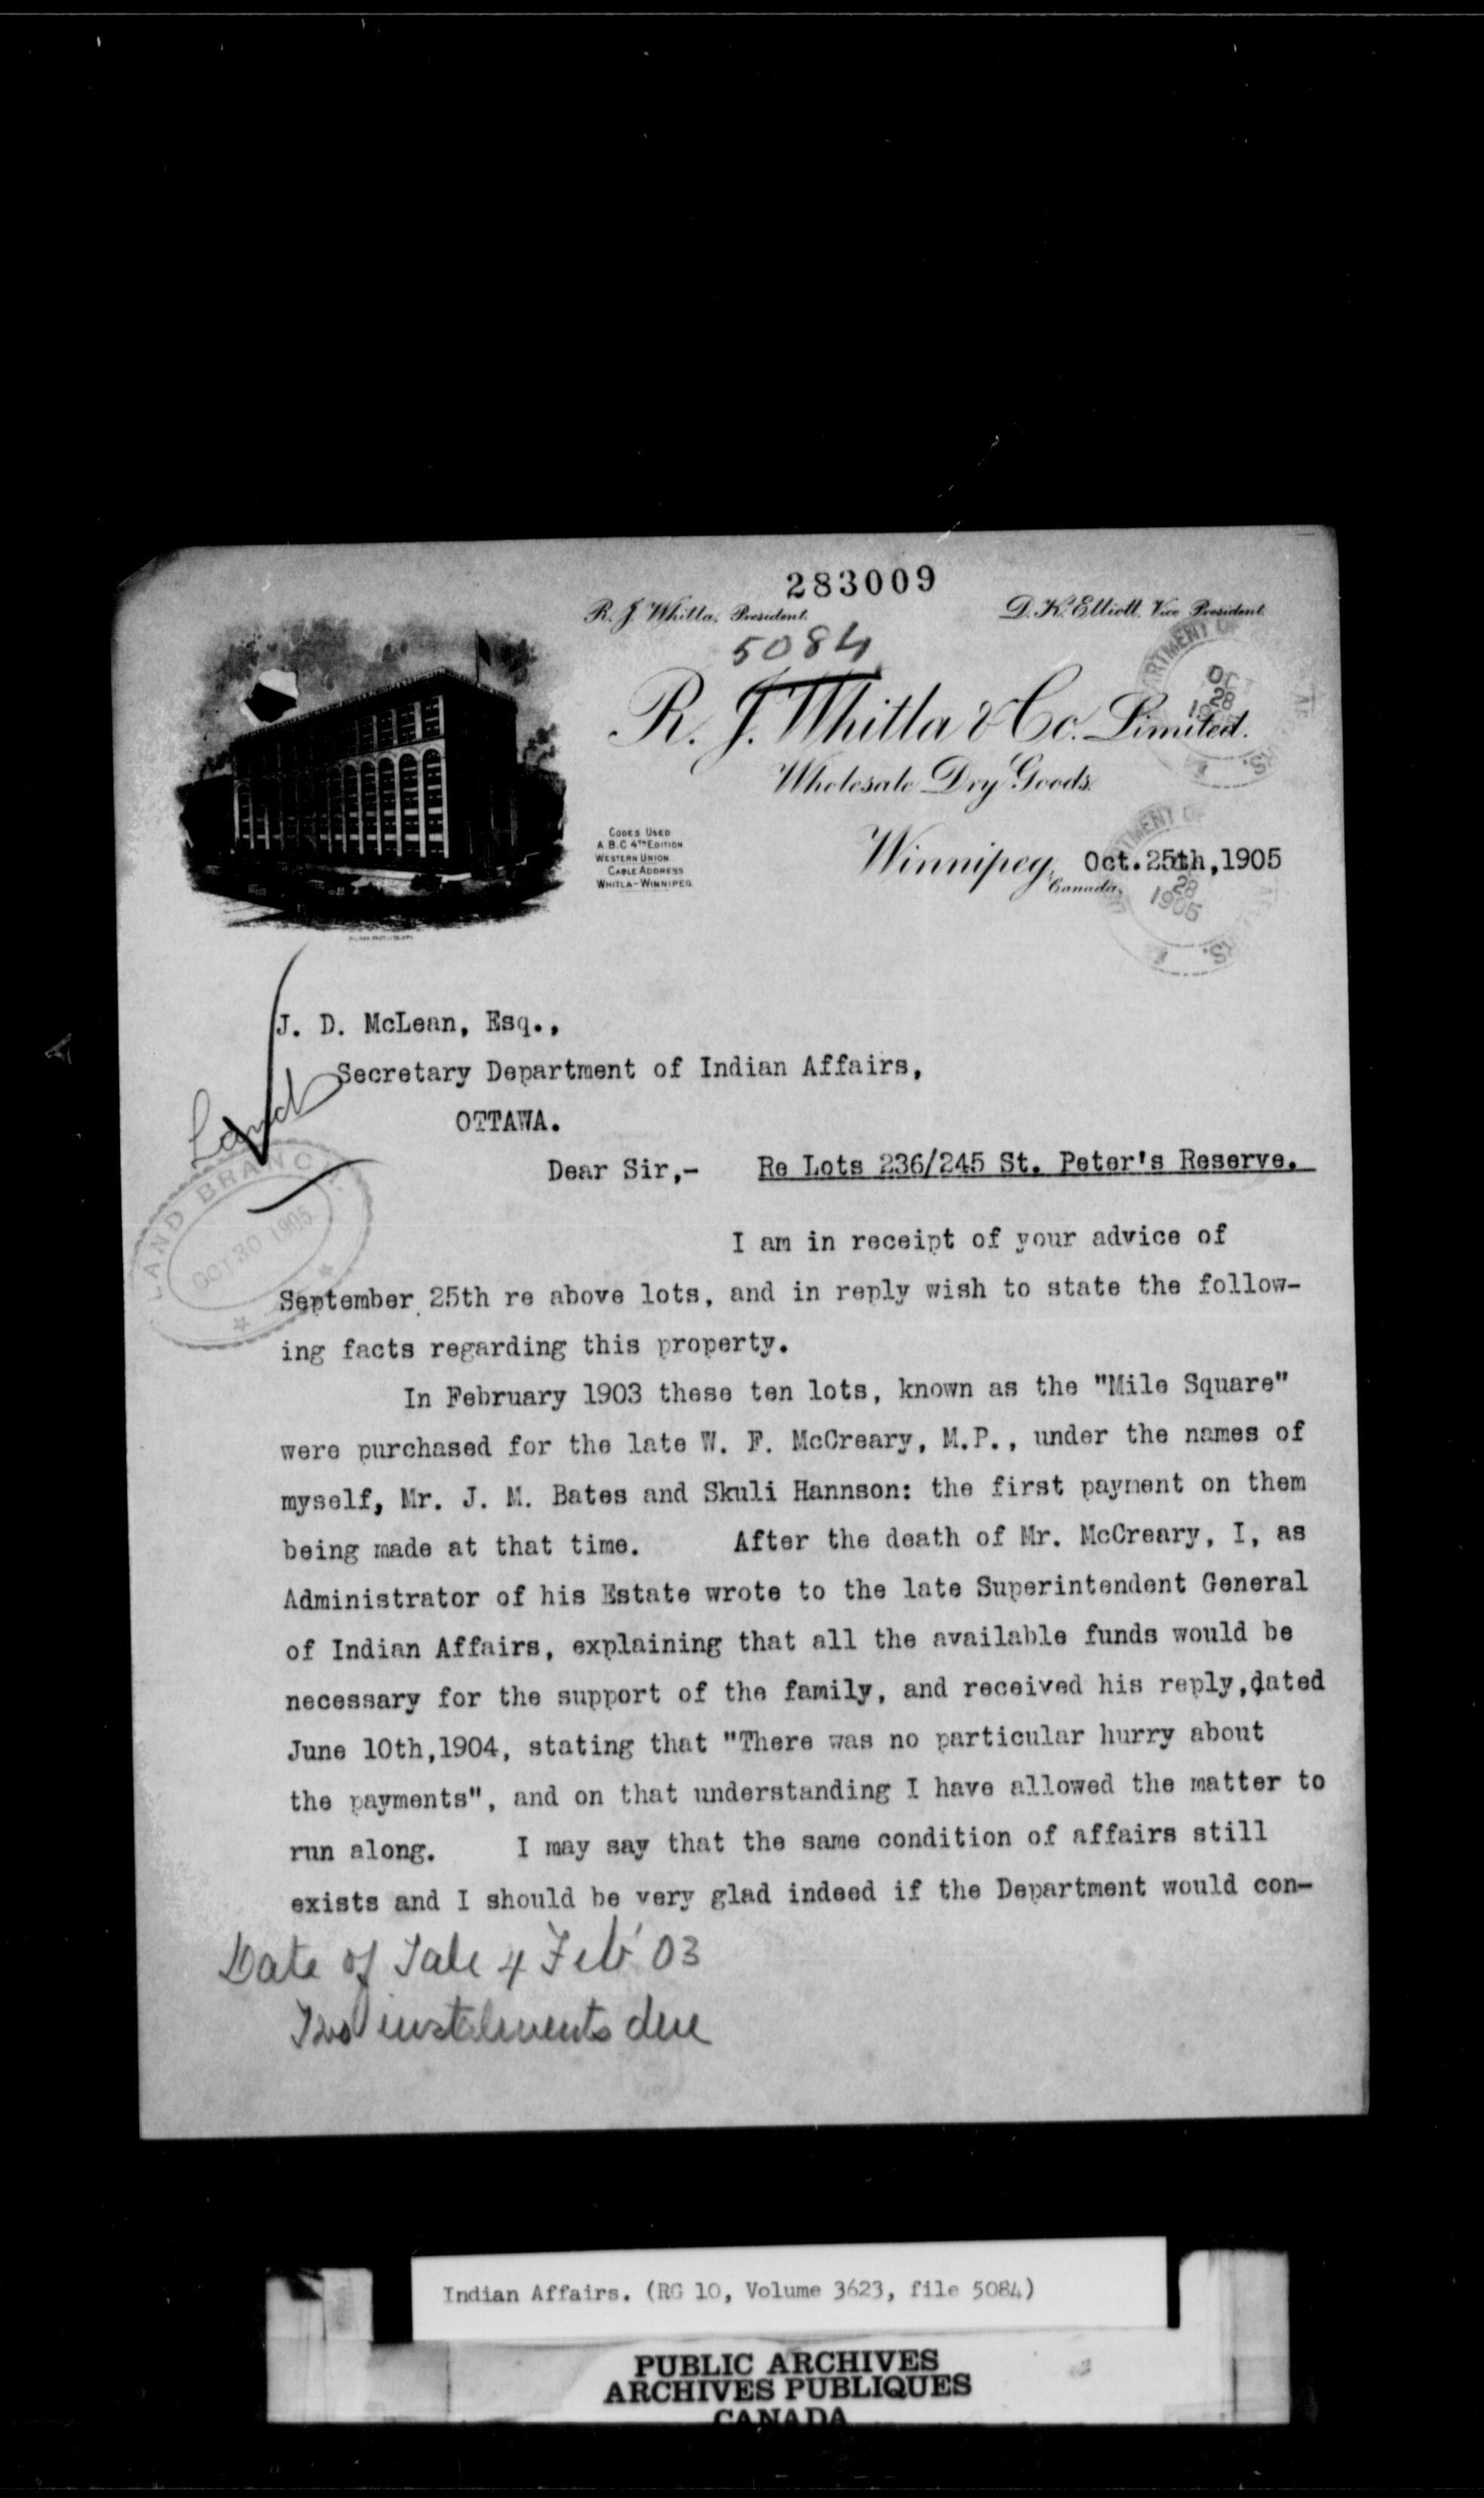 283009
R. J. Whitla, President.
D. K. Elliott, Vice President.
5084
R. J. Whitla & Co. Limited.
Wholesale Dry Goods.
CODES USED
A.B.C 4TH EDITION
WESTERN UNION
CABLE ADDRESS
WHITLA-WINNIPEG
Winnipeg, Canada, Oct. 25th, 1905
OC
28
28
1905
J. D. McLean, Esq.,
Secretary Department of Indian Affairs,
OTTAWA.
Land
LAND BRANC
OCT 30 1905
Dear Sir,- Re Lots 236/245 St. Peter's Reserve.
I am in receipt of your advice of
September 25th re above lots, and in reply wish to state the follow-
ing facts regarding this property.
In February 1903 these ten lots, known as the "Mile Square"
were purchased for the late W. F. McCreary, M.P., under the names of
myself, Mr. J. M. Bates and Skuli Hannson: the first payment on them
being made at that time. After the death of Mr. McCreary, I, as
Administrator of his Estate wrote to the late Superintendent General
of Indian Affairs, explaining that all the available funds would be
necessary for the support of the family, and received his reply,dated
June 10th,1904, stating that "There was no particular hurry about
the payments", and on that understanding I have allowed the matter to
run along. I may say that the same condition of affairs still
exists and I should be very glad indeed if the Department would con-
Date of Sale 4 Feb' 03
Two instalments due
Indian Affairs. (RG 10, Volume 3623, file 5084)
PUBLIC ARCHIVES
ARCHIVES PUBLIQUES
CANADA